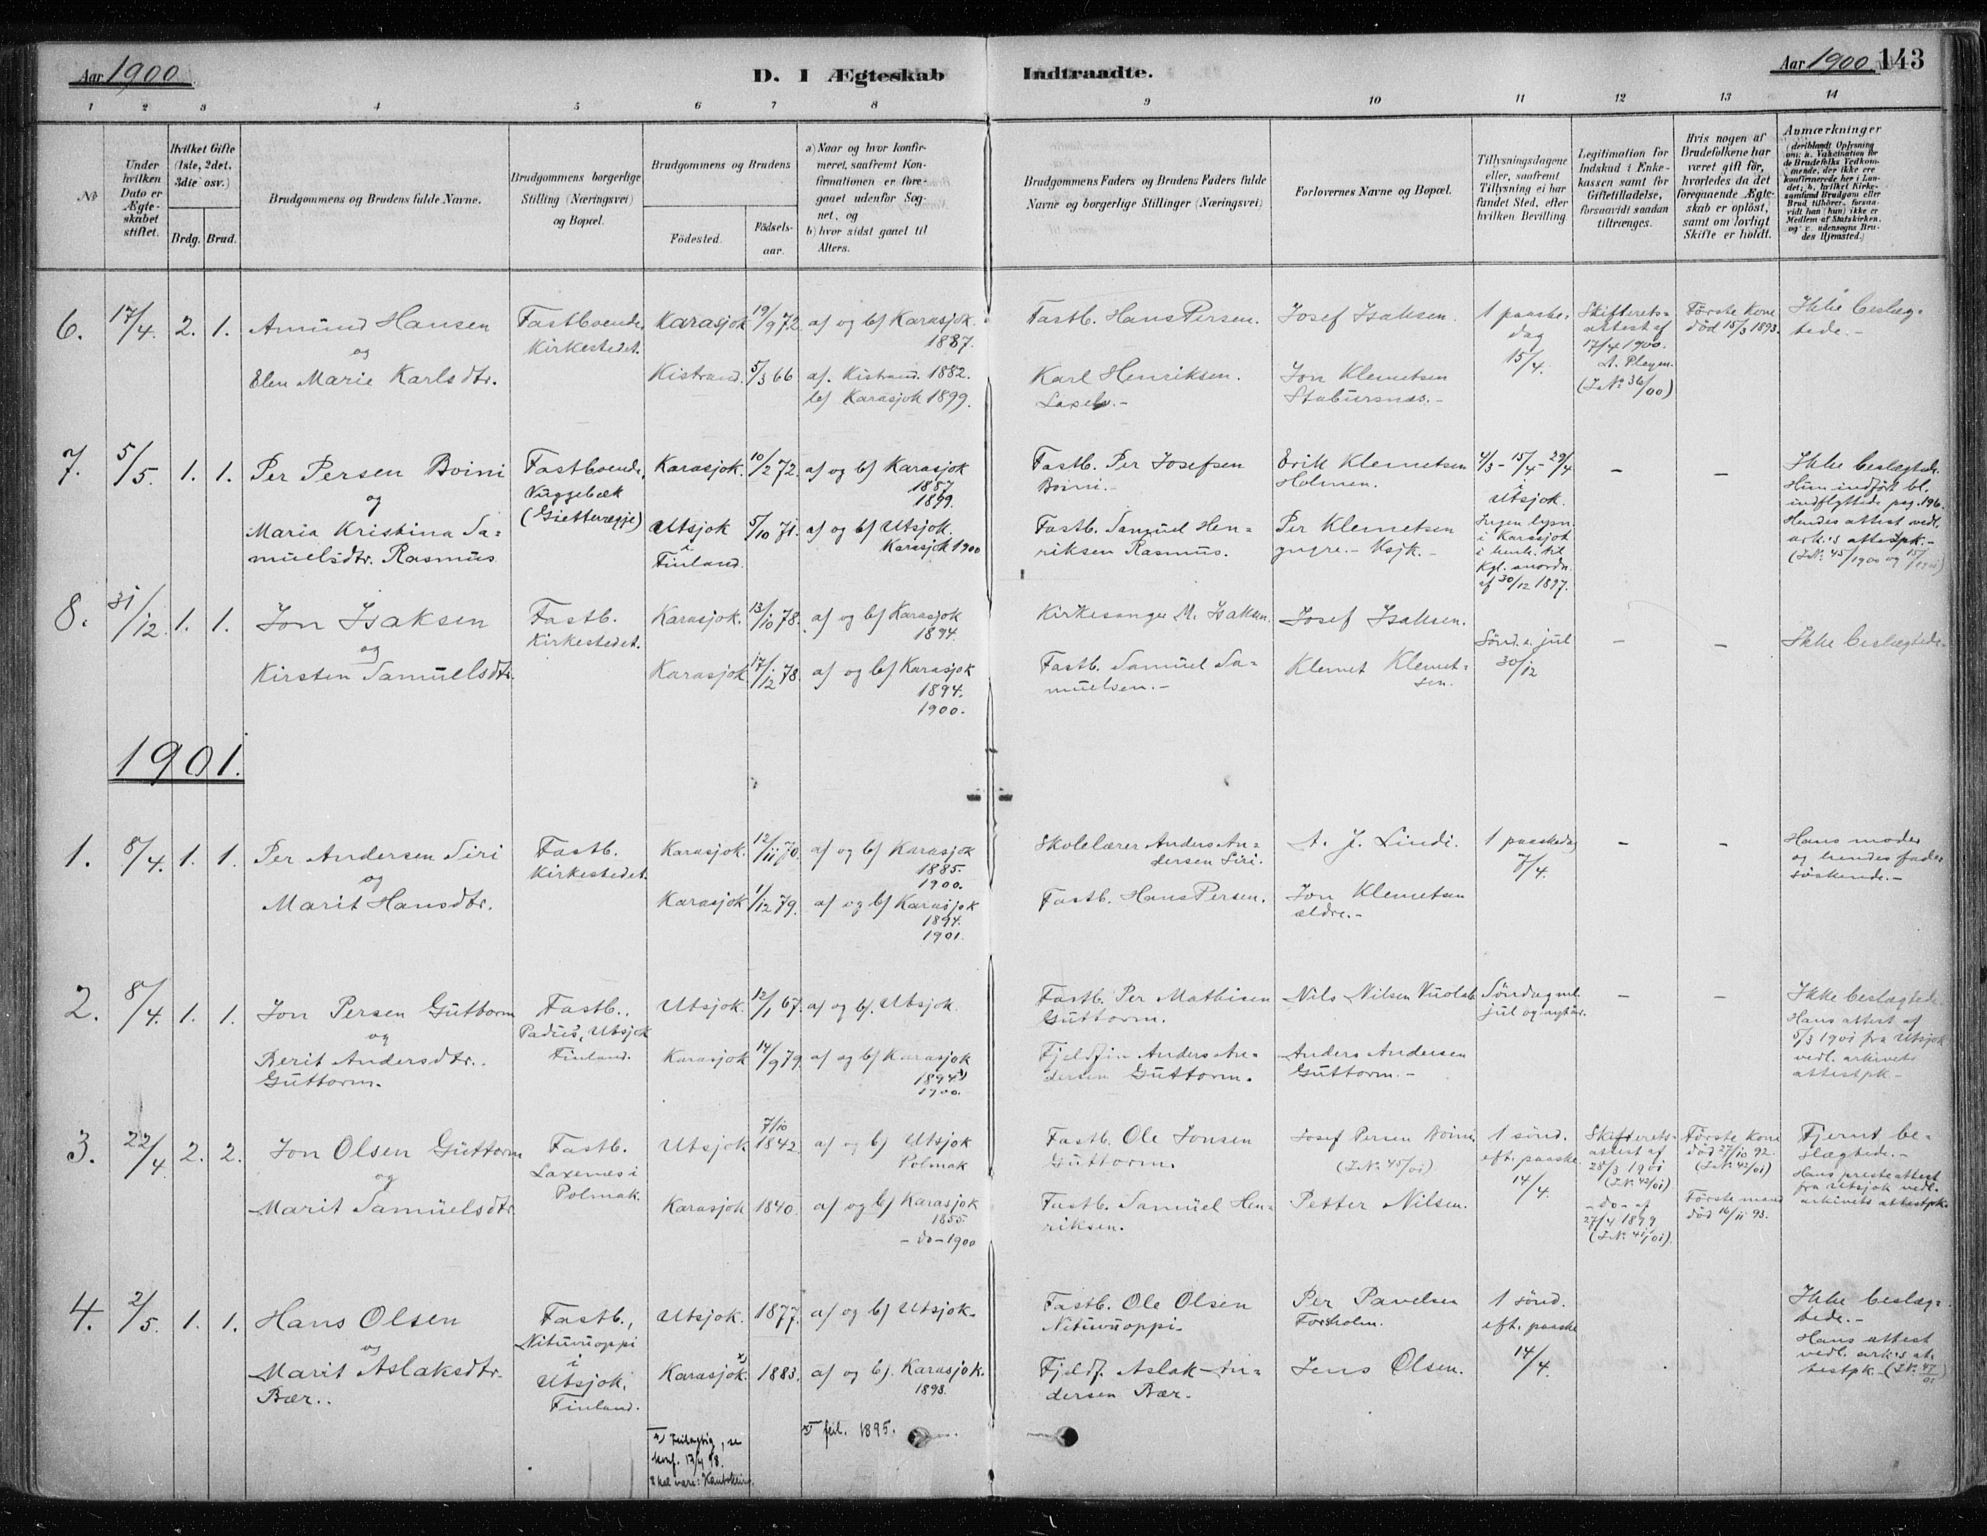 Aar 1900
D. I Ægteskab
Indtraadte.
Aar 1900
143
1 2 3 4 5 6 7 8 9 10 11 12 13 14
No
Under hvilken Dato er Ægteskabet stiftet.
Hvilket Gifte (1ste, 2det, 3die osv.)
Brdg. Brud.
Brudgommens og Brudens fulde Navne.
Brudgommens borgerlige Stilling (Næringsvei) og Bopæl.
Brudgommens og Brudens
Fødested.
Fødselsaar.
a) Naar og hvor konfirmeret, saafremt Konfirmationen er foregaaet udenfor Sognet, og
b) hvor sidst gaaet til Alters.
Brudgommens Faders og Brudens Faders fulde Navne og borgerlige Stillinger (Næringsvei)
Forlovernes Navne og Bopæl.
Tillysningsdagene eller, saafremt Tillysning ei har fundet Sted, efter hvilken Bevilling.
Legitimation for Indskud i Enkekassen samt for Giftetilladelse, forsaavidt saadan tiltrænges.
Hvis nogen af Brudefolkene har været gift før, hvorledes da det foregaaende Ægteskab er opløst, samt om lovligt Skifte er holdt.
Anmærkninger (deriblandt Oplysning om: a. Vaccination for de Brudefolks Vedkommende, der ikke ere konfirmerede her i Landet; b. hvilket Kirkesamfund Brudgom eller Brud tilhører, forsaavidt han (hun) ikke er Medlem af Statskirken, og c. udensogns Brudes Hjemsted.)
6. 17/4 2. 1. Amund Hansen
og
Elen Marie Karlsdtr.
Fastboende
Kirkestedet.
Karasjok 19/9 72. af og bf Karasjok.
1887.
Kistrand. 5/3 66 af. Kistrand. 1882.
bf Karasjok 1899.
Fastb. Hans Persen.
Karl Henriksen.
Laxelv.-
Josef Isaksen.
Jon Klemetsen
Stabursnæs.-
1 paaske-
dag
15/4.
Skifterets-
attest af
17/4 1900.
(J.No 36/00)
Første Kone
død 15/3 1893.
Ikke beslæg-
tede.-
7. 5/5. 1. 1. Per Persen Boini
og
Maria Kristina Sa-
muelsdtr. Rasmus
Fastboende,
Vuggebæk
(Giettevægje)
Karasjok. 10/2 72. af og bf Karasjok
1887
1899.
Utsjok 5/10 71. af og bf Utsjok.
i Karasjok 1900
Finland.
Fastb. Per Josefsen
Boini.-
Fastb. Samuel Hen-
riksen Rasmus.
Erik Klemetsen
Holmen.
Per Klemetsen
yngre.- Ksjk.-
4/3 - 15/4 - 29/4
i
Utsjok.
Ingen lysn.
i Karasjok
i henh. til
Kgl. anordn.
af 30/12 1897.
- -
Ikke beslægtede.
Hun indført bl.
indflyttede pag. 196.
Hendes attest vedl.
ark.s attestpk.-
(J.No 45/1900 og
8. 31/12. 1. 1. Jon Isaksen
og
Kirsten Samuelsdtr.
Fastb.
Kirkestedet.
Karasjok. 13/10 78. af og bf Karasjok
1894.
Karasjok. 17/12 78. af og bf Karasjok
1894.
1900.
Kirkesanger M. Isaksen.
Fastb. Samuel Sa-
muelsen.-
Josef Isaksen.
Klemet Klemet-
sen.
Sønd. e. jul
30/12
- -
Ikke beslægtede.
1901.
1. 8/4. 1. 1. Per Andersen Siri
og
Marit Hansdtr.
Fastb.
Kirkestedet.
Karasjok. 12/11 70. af og bf Karasjok
1885.
1900.
Karasjok 1/12 79. af og bf Karasjok
1894.
1901.
Skolelærer Anders An-
dersen Siri.
Fastb. Hans Persen.
A. J. Lindi.
Jon Klemetsen
ældre.-
1 paaskedag
7/4.
- -
Hans moder
og hendes fader
søskende.-
2. 8/4. 1. 1. Jon Persen Guttorm
og
Berit Andersdtr.
Guttorm.
Fastb.,
Padus, Utsjok
Finland.
Utsjok. 12/1 67. af og bf. Utsjok.
Karasjok 14/9 79. af og bf Karasjok
1894 x)
1900.
Fastb. Per Mathisen
Guttorm.
Fjeldfin Anders An-
dersen Guttorm.
Nils Nilsen Vuolab
Anders Andersen
Guttorm.-
Søndag ml.
jul og nytår.
- -
Ikke beslægtede.
Hans attest af
5/3 1901 fra Utsjok
vedl. arkivets
attestpk.-
3. 22/4. 2. 2. Jon Olsen Guttorm
og
Marit Samuelsdtr.
Fastb.
Laxenæs i
Polmak.
Utsjok 7/10 1842. af og bf Utsjok
Polmak
Karasjok 1840. af og bf Karasjok
1855.
- do - 1900
Fastb. Ole Jonsen
Guttorm.
Fastb. Samuel Hen-
riksen.
Josef Persen Boini
(J.No 45/01)
Petter Nilsen.
1 sønd.
eft. paaske
14/4.
Skifterets-
attest af
28/3 1901
(J.No 42/01)
- do - af
27/4 1899
(J.No 41/01).
Første Kone
død 27/10 92.
(J.No 42/01)
Første mand
død 16/11 93.
Fjernt be-
slægtede.-
Hans presteattest
fra Utsjok vedl.
arkivets attestpk.
4. 2/5. 1. 1. Hans Olsen
og
Marit Aslaksdtr.
Bær..
Fastb.,
Nituvuoppi
i
Utsjok,
Finland.
Utsjok. 1877. af og bf Utsjok.
Karasjok. x) 1883. af og bf. Karasjok.
1898.
Fastb. Ole Olsen
Nituvuoppi-
Fjeldf. Aslak An-
dersen Bær.
Per Pavelsen
Forholm.
Jens Olsen.
1 sønd.
eft. paaske
14/4.
Ikke beslæg-
tede.-
Hans attest
vedl. ark.s at-
testpk.- (J.No 47/01
x) Feilagtig, se
konf. 13/4 98.
Skal være: Kautokeino.
x) feil. 1895.